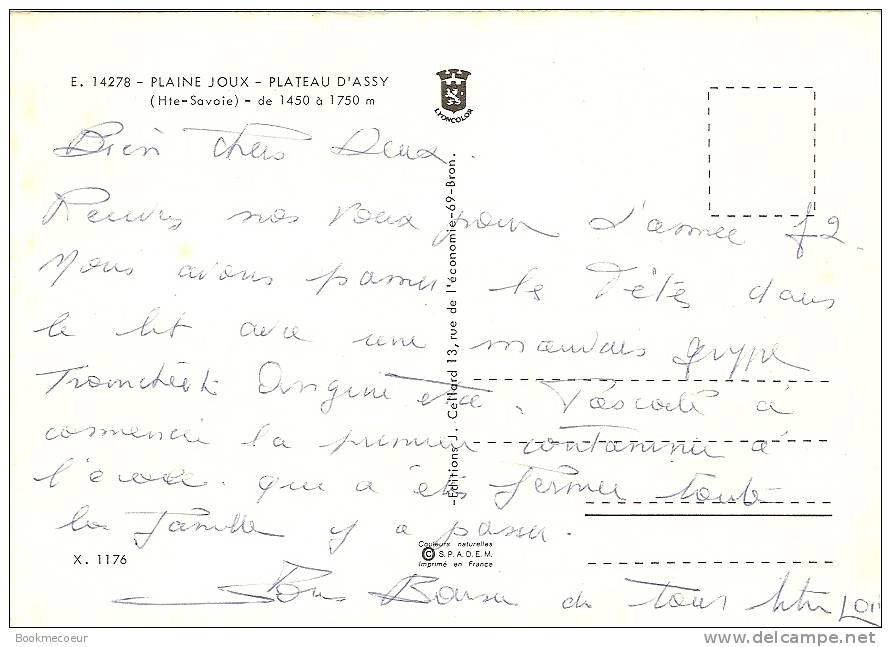 E. 14278 - PLAINE JOUX - PLATEAU D'ASSY
(Hte-Savoie) - de 1450 à 1750 m
LYONCOLOR
Bien chers Deux.
nos voeux pour l'année 72.
Nous avons passer les Fêtes dans
le lit avec une mauvais gryppe
Angine etc. Pascale à
commencée la premier contaminée à
l'école que a étés fermée toute
la famille y a passer.
Bons Baisers de Tous
-Editions J. Cellard 13, rue de l'économie-69-Bron.
Couleurs naturelles
© S.P.A.D.E.M.
Imprimé en France
X. 1176
Bookmecoeur
delcampe.net